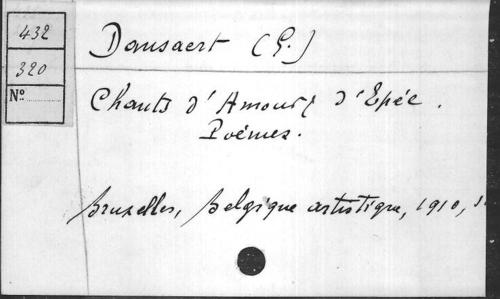 432
320
No
Dansaert (G.)
Chants d'Amour & d'Epée.
Poèmes.
Bruxelles, Belgique artistique, 1910,